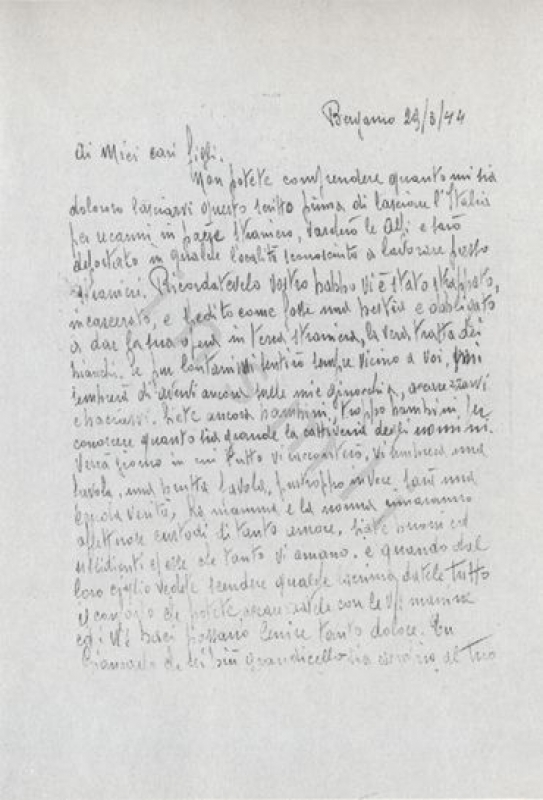 Bergamo 29/3/44
Ai Miei cari figli.
Non potete comprendere quanto mi sia
doloroso lasciarvi questo scritto prima di lasciare l'Italia
per recarmi in paese straniero, varcherò le Alpi e sarò
deportato in qualche località sconosciuta a lavorare presso
straniere. Ricordatevelo vostro babbo vi è stato strappato,
incarcerato, e spedito come fosse una bestia e obbligato
a dar la sua opera in terra straniera, la vera tratta dei
bianchi. Se pur lontani mi sentirò sempre vicino a voi, mi
sembrerà di avervi ancora sulle mie ginocchia, accarezzarvi
e baciarvi. Siete ancora bambini, troppo bambini, per
conoscere quanto sia grande la cattiveria degli uomini.
Verrà giorno in cui tutto vi racconterò, vi sembrerà una
favola, una brutta favola, purtroppo invece sarà una
verità, la mamma e la nonna rimarranno
affettuose custodi di tanto amore. Siate buoni ed
ubbidienti ad esse che tanto vi amano. e quando dal
loro ciglio vedete scendere qualche lacrima datele tutto
il conforto che potete, accarezzatele con le vs. manine
ed i vs. baci possano lenire tanto dolore. Tu
Giancarlo che sei più grandicello sia vicino al tuo